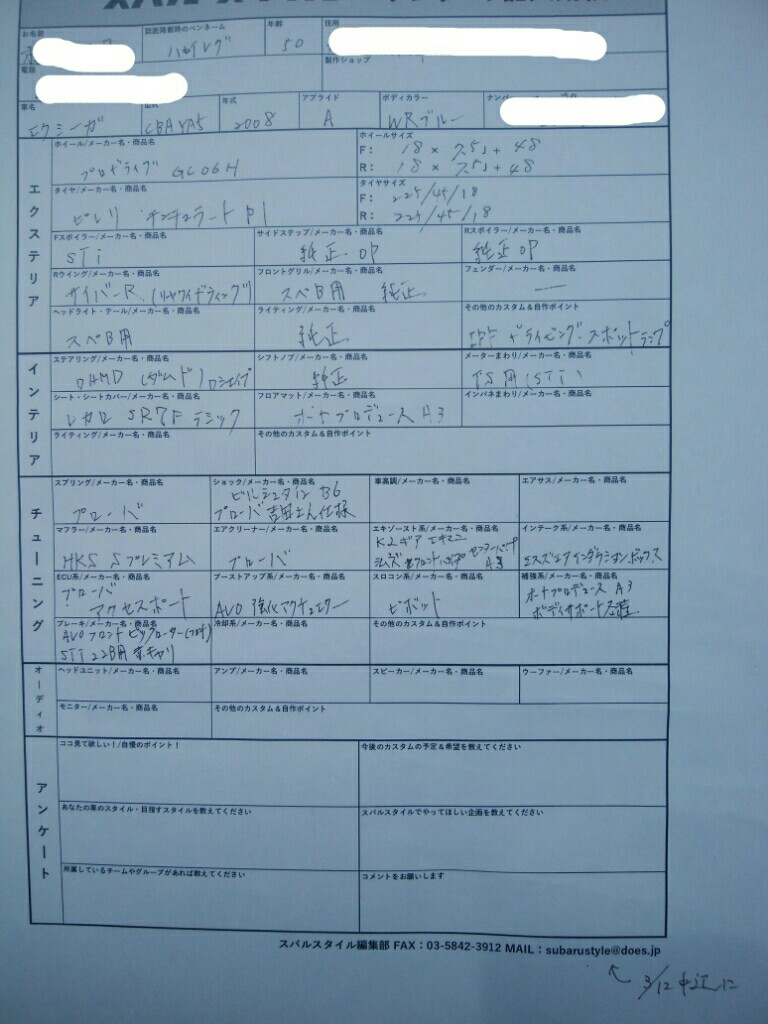 お名前 誌面掲載時のペンネーム 年齢 住所
50
電話 製作ショップ
車名 型式 年式 アプライド ボディカラー ナンバー
エクシーガ CBA YA5 2008 A WRブルー
エクステリア
ホイール/メーカー名・商品名 ホイールサイズ
プロドライブ GC06H F: 18 × 7.5J + 48
R: 18 × 7.5J + 48
タイヤ/メーカー名・商品名 タイヤサイズ
ピレリ チンチュラート P1 F: 225/45/18
R: 225/45/18
Fスポイラー/メーカー名・商品名 サイドステップ/メーカー名・商品名 Rスポイラー/メーカー名・商品名
STi 純正 OP 純正 OP
Rウイング/メーカー名・商品名 フロントグリル/メーカー名・商品名 フェンダー/メーカー名・商品名
サイバーR スペB用 純正 —
ヘッドライト・テール/メーカー名・商品名 ライティング/メーカー名・商品名 その他のカスタム&自作ポイント
スペB用 純正 IPF ドライビング・スポットランプ
インテリア
ステアリング/メーカー名・商品名 シフトノブ/メーカー名・商品名 メーターまわり/メーカー名・商品名
DAMD (ダムド) Dシェイプ 純正 tS用 (STi)
シート・シートカバー/メーカー名・商品名 フロアマット/メーカー名・商品名 インパネまわり/メーカー名・商品名
レカロ SR7F ラシック オートプロデュース A3
ライティング/メーカー名・商品名 その他のカスタム&自作ポイント
チューニング
スプリング/メーカー名・商品名 ショック/メーカー名・商品名 車高調/メーカー名・商品名 エアサス/メーカー名・商品名
プローバ ビルシュタイン B6
プローバ 吉田さん仕様
マフラー/メーカー名・商品名 エアクリーナー/メーカー名・商品名 エキゾースト系/メーカー名・商品名 インテーク系/メーカー名・商品名
HKS Sプレミアム プローバ K2ギア エキマニ
シムズ センターパイプ A3 インダクションボックス
ECU系/メーカー名・商品名 ブーストアップ系/メーカー名・商品名 スロコン系/メーカー名・商品名 補強系/メーカー名・商品名
プローバ アクセスポート AVO 強化アクチュエター ピボット オートプロデュース A3
ボディサポート
ブレーキ/メーカー名・商品名 冷却系/メーカー名・商品名 その他のカスタム&自作ポイント
AVO フロント ビッグローター
STi 22B用 赤キャリ
オーディオ
ヘッドユニット/メーカー名・商品名 アンプ/メーカー名・商品名 スピーカー/メーカー名・商品名 ウーファー/メーカー名・商品名
モニター/メーカー名・商品名 その他のカスタム&自作ポイント
アンケート
ココ見て欲しい!/自慢のポイント! 今後のカスタムの予定&希望を教えてください
あなたの車のスタイル・目指すスタイルを教えてください スバルスタイルでやってほしい企画を教えてください
所属しているチームやグループがあれば教えてください コメントをお願いします
スバルスタイル編集部 FAX:03-5842-3912 MAIL:subarustyle@does.jp
3/12 中に